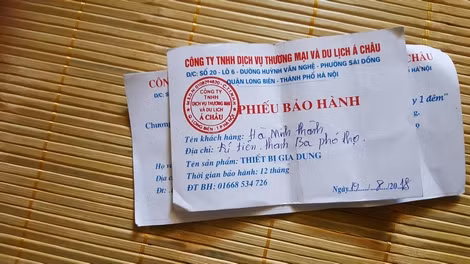 CÔNG TY TNHH DỊCH VỤ THƯƠNG MẠI VÀ DU LỊCH Á CHÂU
Đ/C: SỐ 20 - LÔ 6 - ĐƯỜNG HUỲNH VĂN NGHỆ - PHƯỜNG SÀI ĐỒNG
QUẬN LONG BIÊN - THÀNH PHỐ HÀ NỘI
CÔNG TY
TNHH
DỊCH VỤ THƯƠNG MẠI
VÀ DU LỊCH
Á CHÂU
PHIẾU BẢO HÀNH
Tên khách hàng: Hà Minh Thành
Địa chỉ: tiên Thanh Ba phó thọ
Tên sản phẩm: THIẾT BỊ GIA DỤNG
Thời gian bảo hành: 12 tháng
ĐT BH: 01668 534 726
Ngày 19 / 8 / 2018
CÔNG
Đ/C:
Á CHÂU
HÀ NỘI
Chương
y 1 đêm"